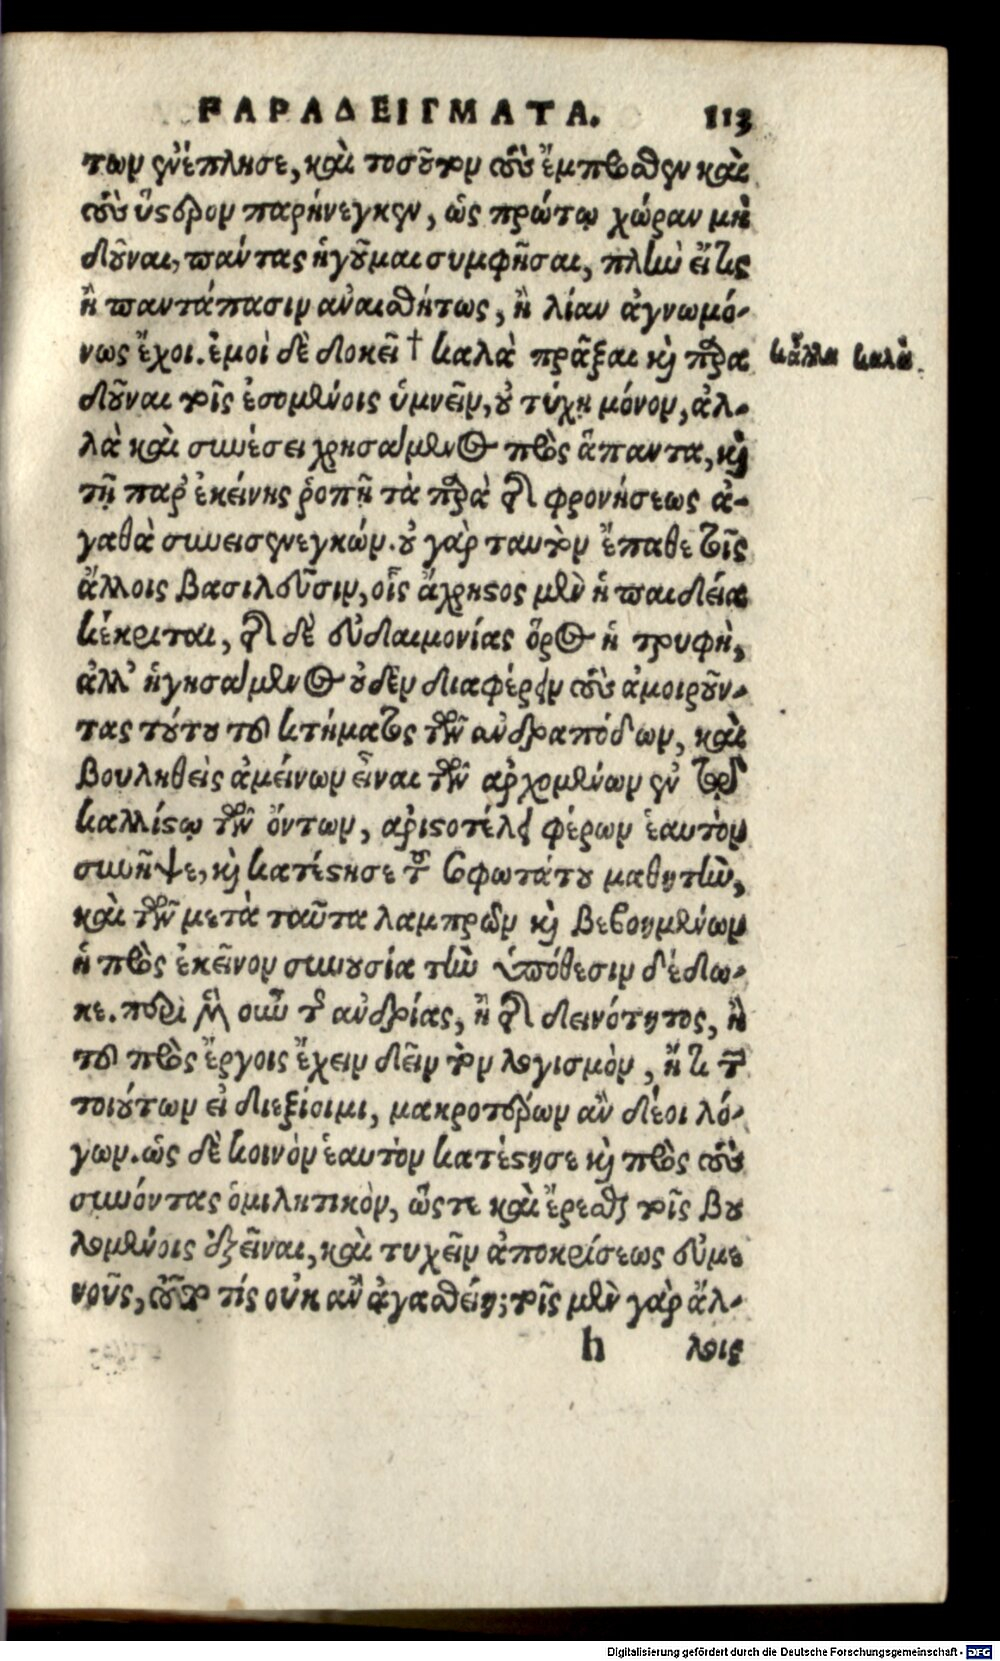 ΠΑΡΑΔΕΙΓΜΑΤΑ. 113
των ἐνέπλησε, καὶ τοσοῦτον τοὺς ἔμπροσθεν καὶ
τοὺς ὕστερον παρήνεγκεν, ὡς πρώτῳ χώραν μὴ
δοῦναι, πάντας ἡγοῦμαι συμφῆσαι, πλὴν εἴ τις
ἢ παντάπασιν ἀναισθήτως, ἢ λίαν ἀγνωμό-
νως ἔχοι. ἐμοὶ δὲ δοκεῖ † καλὰ πρᾶξαι κὶ παρα κἄλλα καλὰ.
δοῦναι τοῖς ἐσομένοις ὑμνεῖν, οὐ τύχῃ μόνον, ἀλ-
λὰ καὶ συνέσει χρησάμενος πρὸς ἅπαντα, καὶ
τῇ παρ' ἐκείνης ῥοπῇ τὰ παρὰ τῆς φρονήσεως ἀ-
γαθὰ συνεισενεγκών. οὐ γὰρ ταυτὸν ἔπαθε τοῖς
ἄλλοις βασιλεῦσιν, οἷς ἄχρηστος μὲν ἡ παιδεία
κέκριται, τῆς δὲ εὐδαιμονίας ὅρος ἡ τρυφὴ,
ἀλλ' ἡγησάμενος οὐδὲν διαφέρειν τοὺς ἀμοιροῦν-
τας τούτου τοῦ κτήματος τῶν ἀνδραπόδων, καὶ
βουληθεὶς ἀμείνων εἶναι τῶν ἀρχομένων ἐν τῷ
καλλίστῳ τῶν ὄντων, ἀριστοτέλει φέρων ἑαυτὸν
συνῆψε, καὶ κατέστησε τοῦ σοφωτάτου μαθητὴν,
καὶ τῶν μετὰ ταῦτα λαμπρῶν καὶ βεβοημένων
ἡ πρὸς ἐκεῖνον συνουσία τὴν ὑπόθεσιν δέδω-
κε. περὶ μὲν οὖν τῆς ἀνδρίας, ἢ τῆς δεινότητος, ἢ
τοῦ πρὸς ἔργοις ἔχειν δεῖν τὸν λογισμὸν, ἤ τι τῶν
τοιούτων εἰ διεξίοιμι, μακροτέρων ἂν δέοι λό-
γων. ὡς δὲ κοινὸν ἑαυτὸν κατέστησε καὶ πρὸς τοὺς
συνόντας ὁμιλητικὸν, ὥστε καὶ ἔρεσθαι τοῖς βου
λομένοις ἐξεῖναι, καὶ τυχεῖν ἀποκρίσεως εὐμε
νοῦς, τοῦτο τίς οὐκ ἂν ἀγασθείη; τοῖς μὲν γὰρ ἄλ-
h λοις
Digitalisierung gefördert durch die Deutsche Forschungsgemeinschaft - DFG